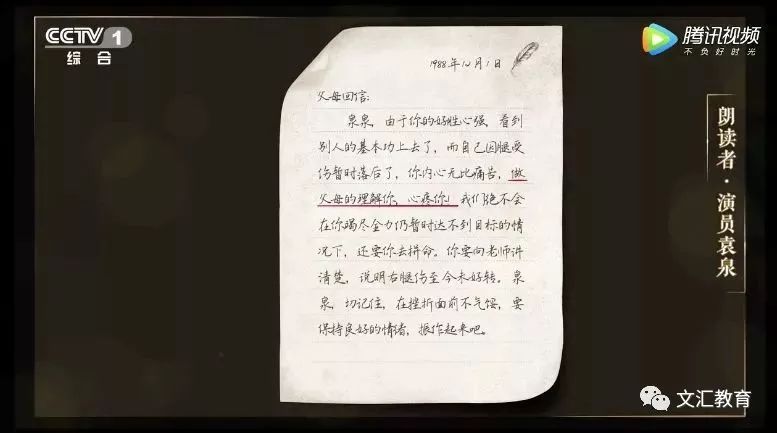 CCTV 1
综合
腾讯视频
不负好时光
1988年12月1日
父母回信:
泉泉,由于你的好胜心强,看到
别人的基本功上去了,而自己因腿受
伤暂时落后了,你内心无比痛苦,做
父母的理解你,心疼你!我们绝不会
在你竭尽全力仍暂时达不到目标的情
况下,还要你去拼命。你要向老师讲
清楚,说明右腿伤至今未好转。泉
泉,切记住,在挫折面前不气馁,要
保持良好的情绪,振作起来吧。
朗读者·演员袁泉
文汇教育